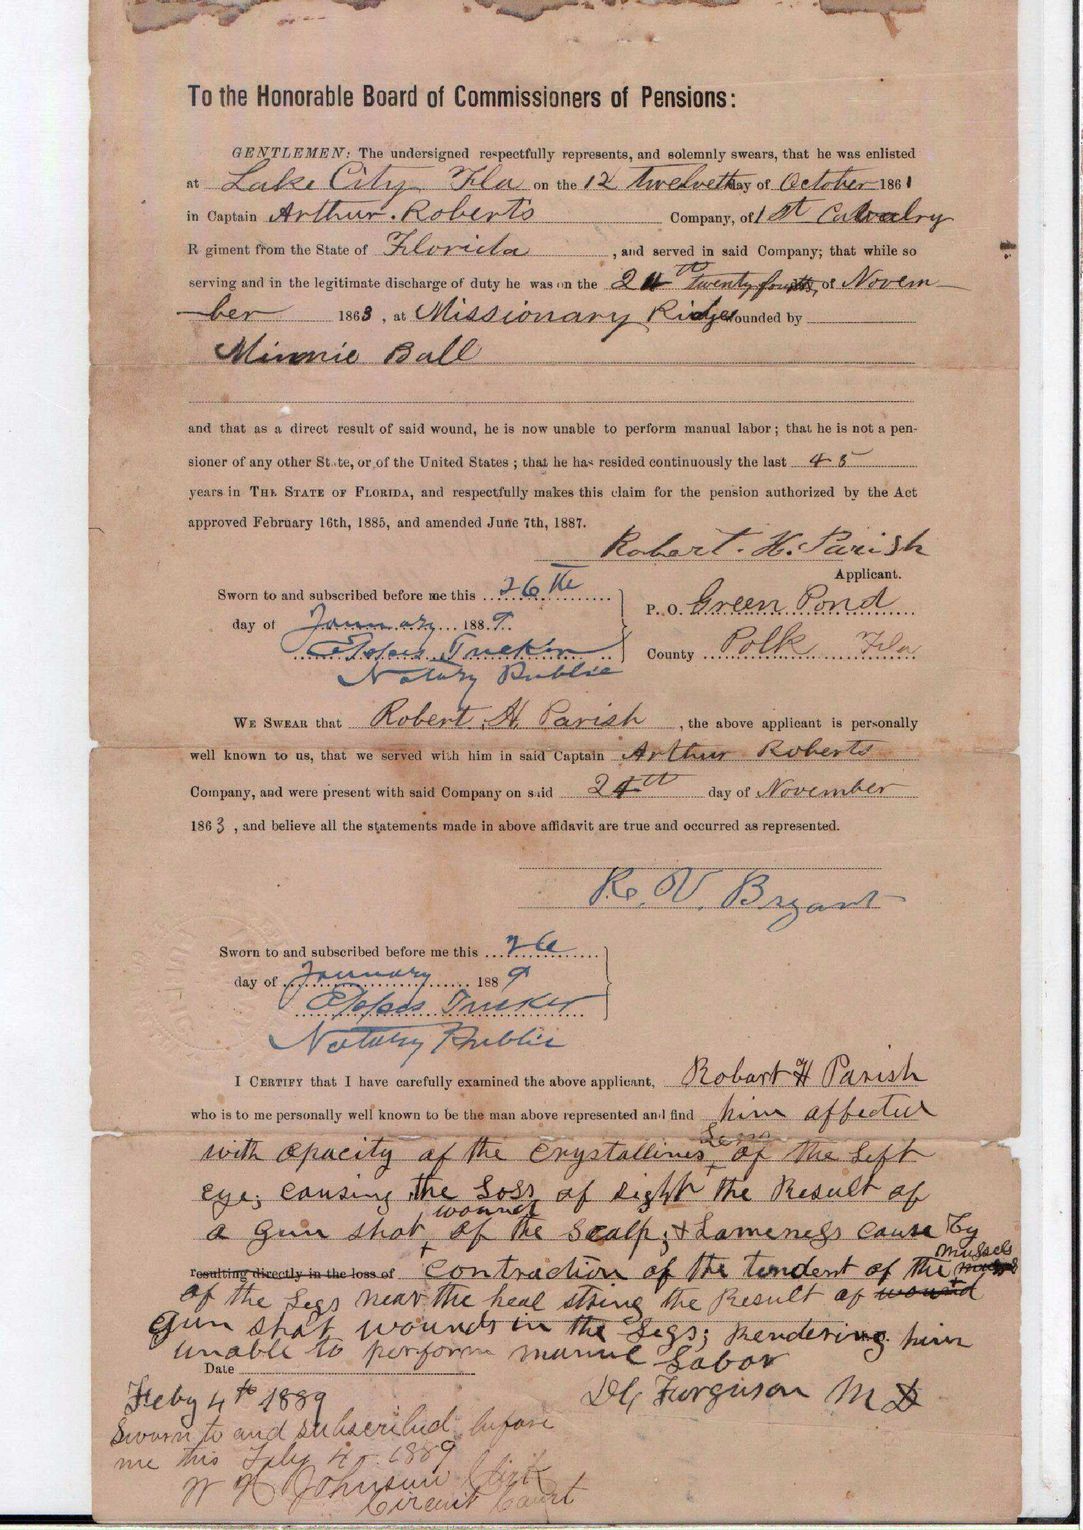 To the Honorable Board of Commissioners of Pensions:
GENTLEMEN: The undersigned respectfully represents, and solemnly swears, that he was enlisted
at Lake City Fla on the 12 twelveth day of October 1861
in Captain Arthur Roberts Company, of 1st Cavalry
R giment from the State of Florida, and served in said Company; that while so
serving and in the legitimate discharge of duty he was on the 24th twenty fourth, of Novem-
ber 1863, at Missionary Ridge wounded by
Minnie Ball
and that as a direct result of said wound, he is now unable to perform manual labor; that he is not a pen-
sioner of any other State, or of the United States; that he has resided continuously the last 45
years in THE STATE OF FLORIDA, and respectfully makes this claim for the pension authorized by the Act
approved February 16th, 1885, and amended June 7th, 1887.
Robert. H. Parish
Applicant.
Sworn to and subscribed before me this 26th
day of January 1889.
Eppes Tucker
Notary Public
P. O. Green Pond
County Polk Fla
WE SWEAR that Robert. H. Parish, the above applicant is personally
well known to us, that we served with him in said Captain Arthur Roberts
Company, and were present with said Company on said 24th day of November
1863, and believe all the statements made in above affidavit are true and occurred as represented.
R. V. Bryant
Sworn to and subscribed before me this 26
day of January 1889
Eppes Tucker
Notary Public
I CERTIFY that I have carefully examined the above applicant, Robart H Parish
who is to me personally well known to be the man above represented and find him affected
with opacity of the Crystallines Lens of the Left
eye; causing the Loss of sight the Result of
a gun shot wound of the Scalp; & Lameness cause by
resulting directly in the loss of contraction of the tendent of the mussels
of the Legs near the heal string the Result of wound
Gun shot wounds in the Legs; Rendering him
unable to perform manuel Labor
Date
Feby 4th 1889
D G Furguson M D
Sworn to and subscribed before
me this Feby 4 1889
W H Johnson Clerk
Circuit Court